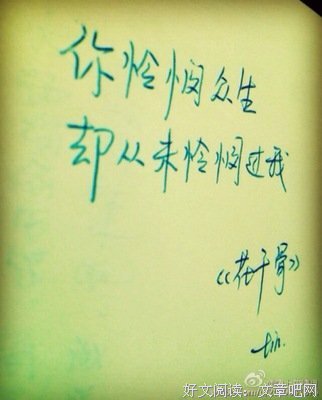 你怜悯众生
却从未怜悯过我
《花千骨》
好文阅读：文章吧网